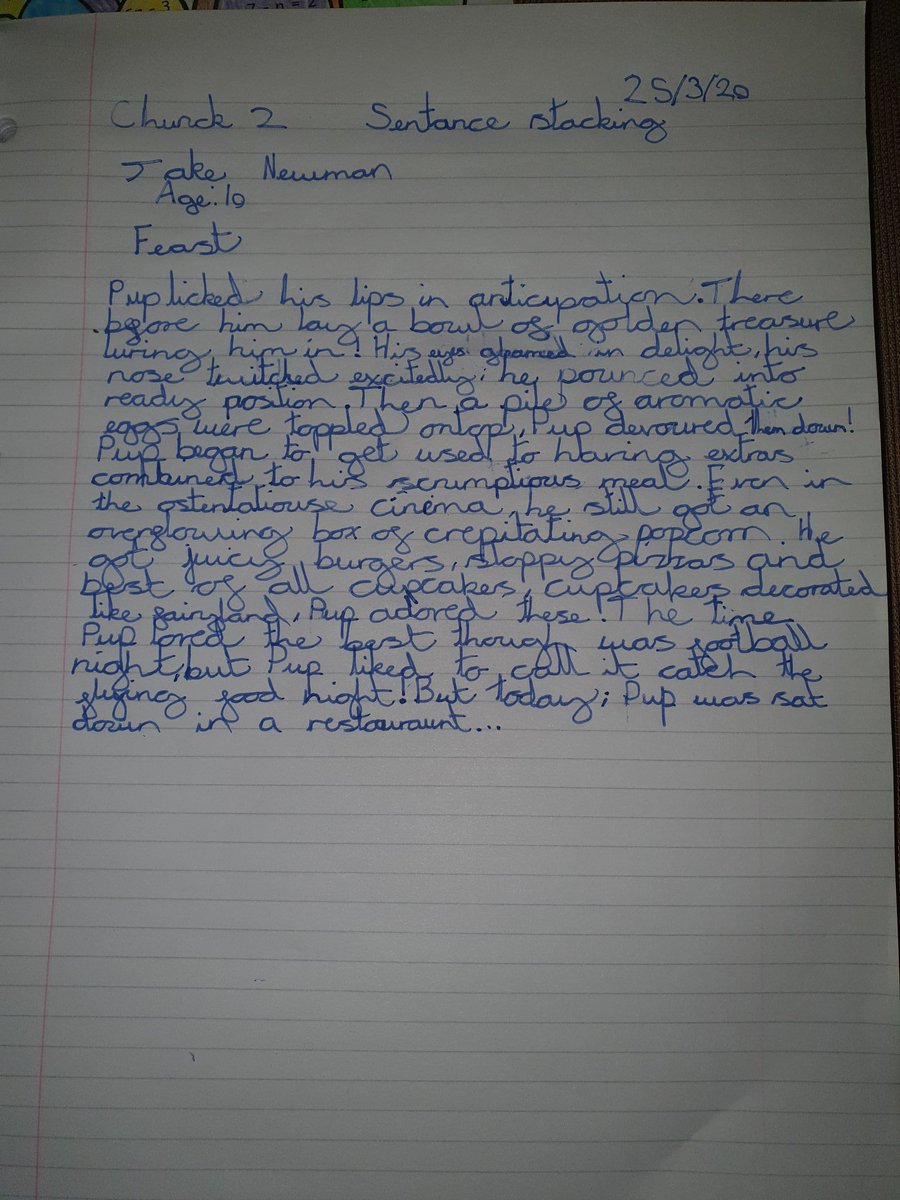 7 - n = 2
25/3/20
Chunck 2 Sentance stacking
Jake Newman
Age: 10
Feast
Pup licked his lips in anticupation. There
before him lay a bowl of golden treasure
luring him in! His eyes gleamed in delight, his
nose twitched excitedly; he pounced into
ready position. Then a pile of aromatic
eggs were toppled ontop, Pup devoured them down!
Pup began to get used to having extras
combined to his scrumptious meal. Even in
the ostentatiouse cinema, he still got an
overflowing box of crepitating popcorn. He
got juicy burgers, sloppy pizzas and
best of all cupcakes, cupcakes decorated
like fairyland, Pup adored these! The time
Pup loved the best though was football
night, but Pup liked to call it catch the
flying food night! But today; Pup was sat
down in a restauraunt...